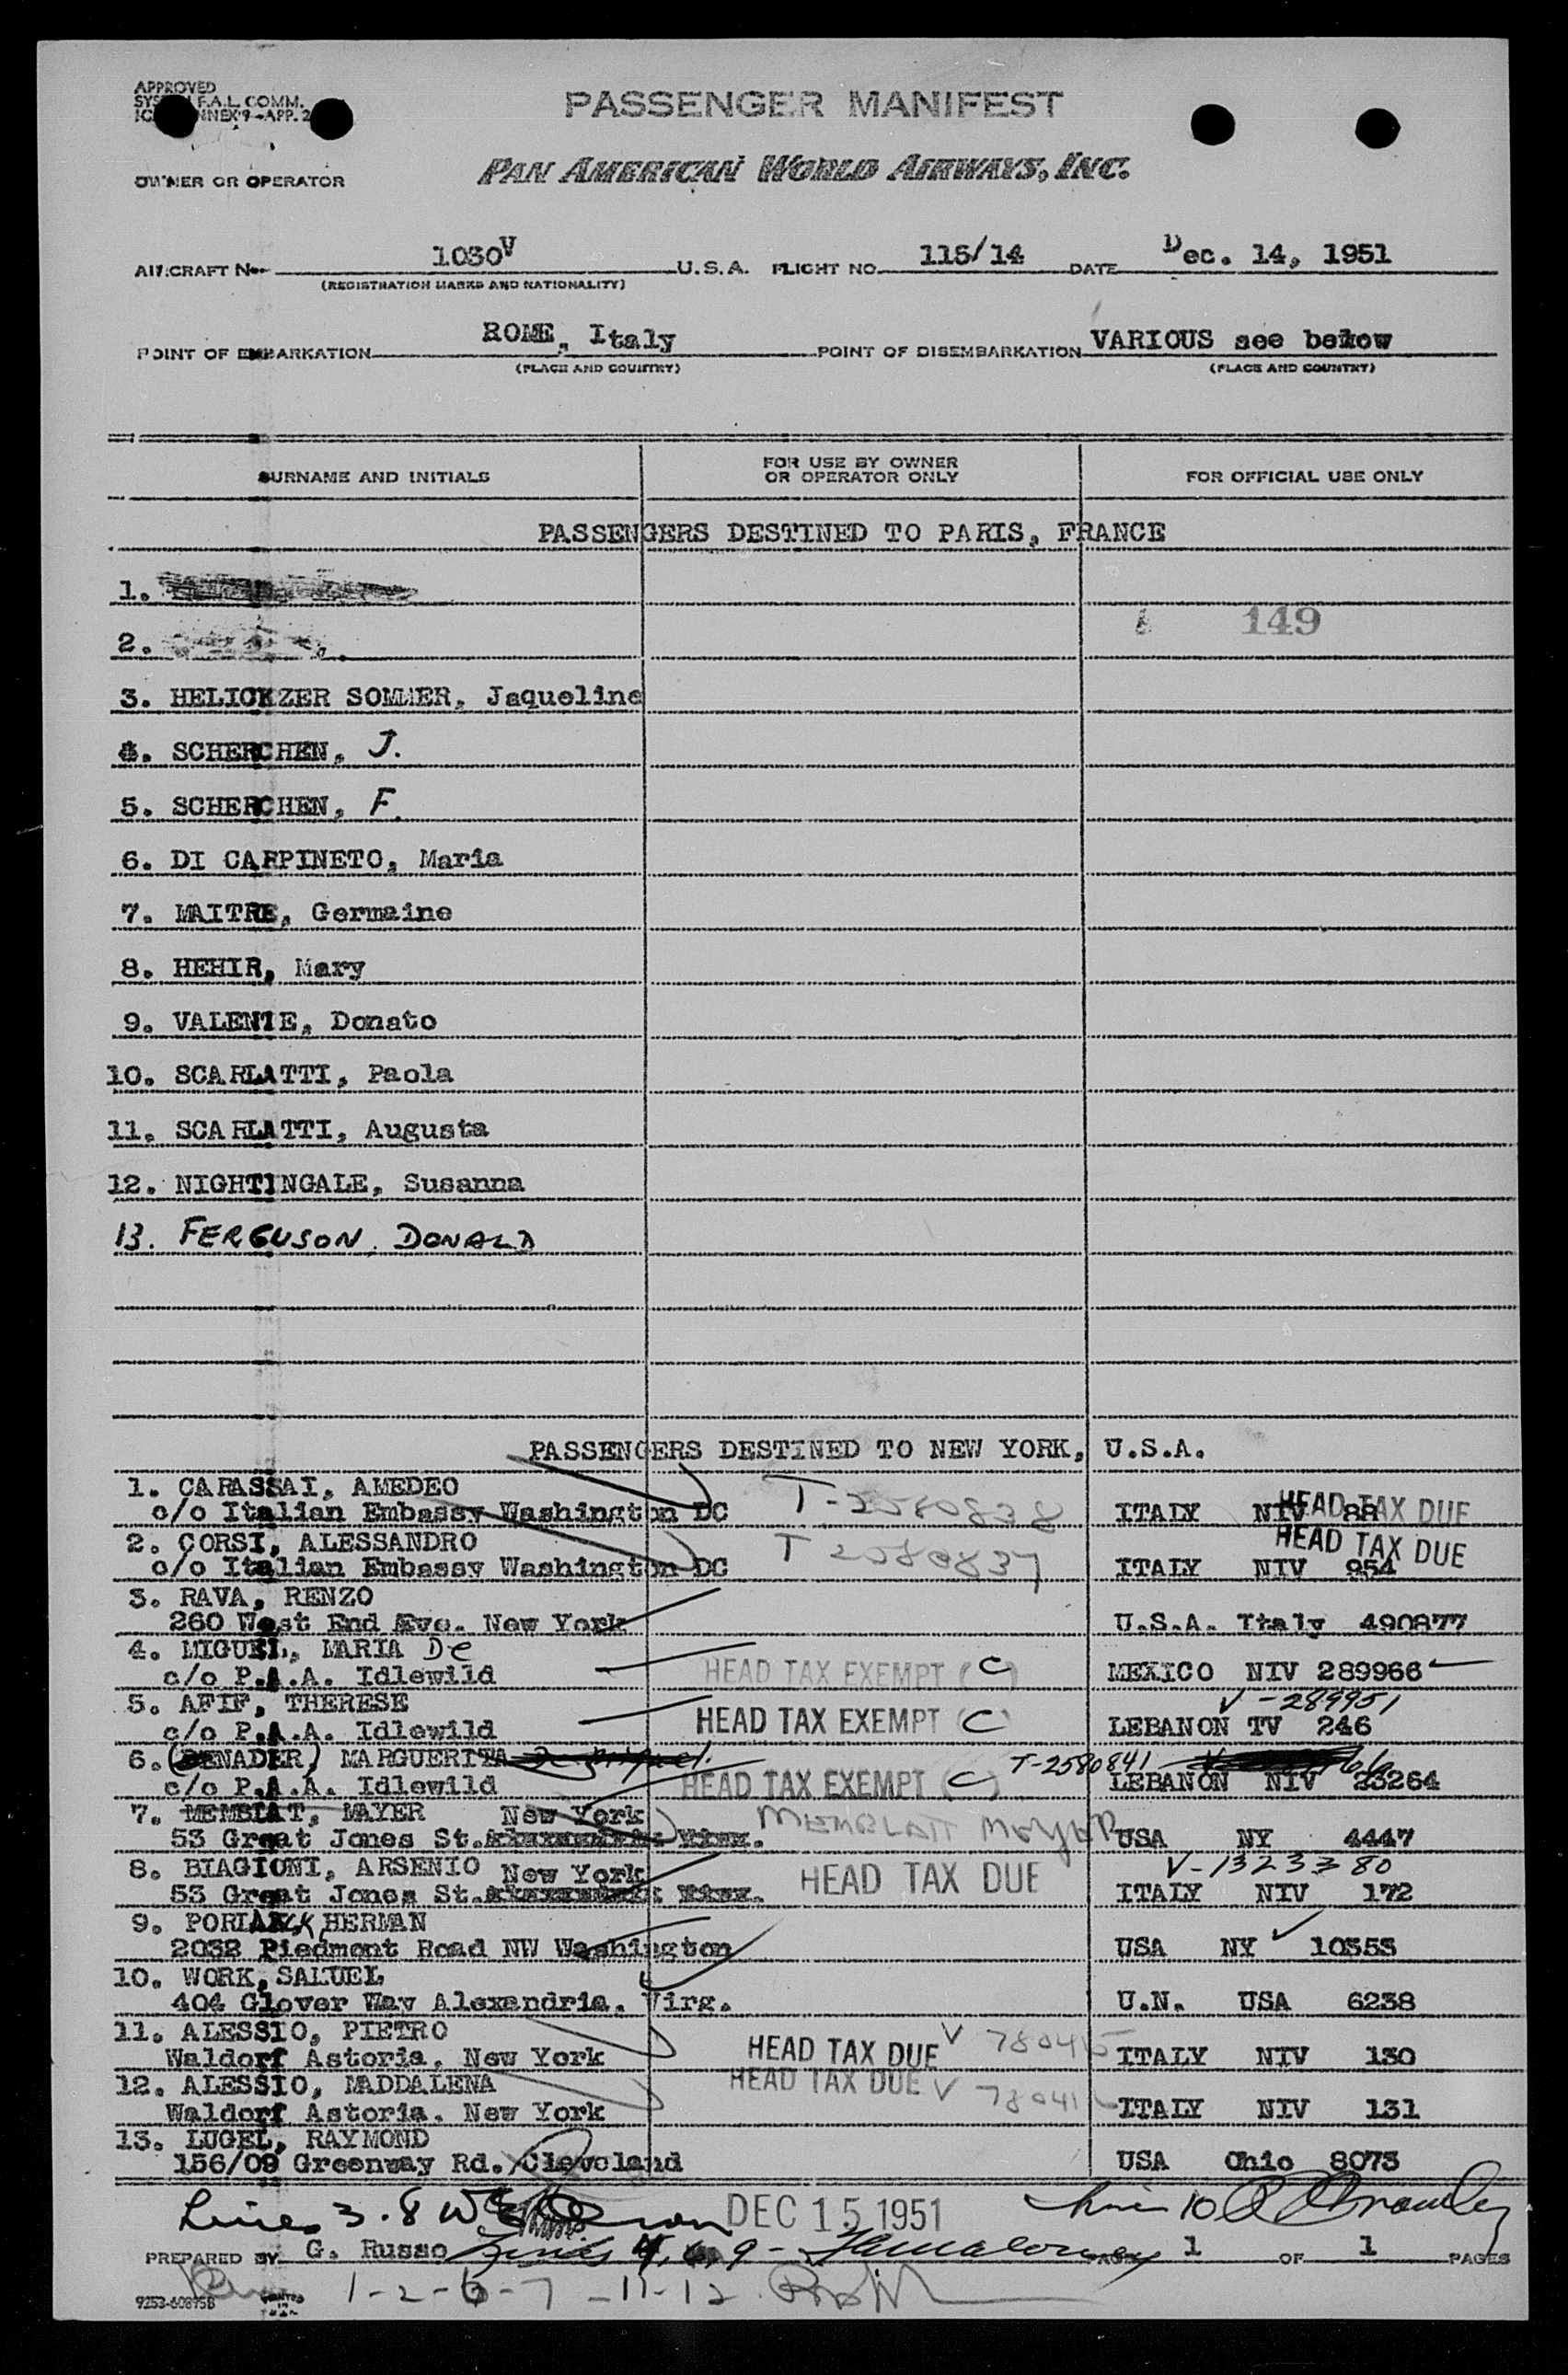 APPROVED
F.A.L. COMM.
PASSENGER MANIFEST
OWNER OR OPERATOR
PAN AMERICAN WORLD AIRWAYS, INC.
AIRCRAFT No. 1030V U.S.A. FLIGHT NO. 115/14 DATE Dec. 14, 1951
(REGISTRATION MARKS AND NATIONALITY)
POINT OF EMBARKATION ROME, Italy POINT OF DISEMBARKATION VARIOUS see below
(PLACE AND COUNTRY) (PLACE AND COUNTRY)
SURNAME AND INITIALS FOR USE BY OWNER OR OPERATOR ONLY FOR OFFICIAL USE ONLY
PASSENGERS DESTINED TO PARIS, FRANCE
1.
149
2.
3. HELICKZER SOMMER, Jaqueline
4. SCHERCHEN, J.
5. SCHERCHEN, F.
6. DI CARPINETO, Maria
7. MAITRE, Germaine
8. HEHIR, Mary
9. VALENTE, Donato
10. SCARLATTI, Paola
11. SCARLATTI, Augusta
12. NIGHTINGALE, Susanna
13. FERGUSON, DONALD
PASSENGERS DESTINED TO NEW YORK, U.S.A.
1. CARASSAI, AMEDEO
c/o Italian Embassy Washington DC T-2580838 ITALY NIV 88 HEAD TAX DUE
2. CORSI, ALESSANDRO HEAD TAX DUE
c/o Italian Embassy Washington DC T 2580837 ITALY NIV 954
3. RAVA, RENZO
260 West End Ave. New York U.S.A. Italy 490877
4. MIGUEL, MARIA De
c/o P.A.A. Idlewild HEAD TAX EXEMPT (C) MEXICO NIV 289966
5. AFIF, THERESE V-289951
c/o P.A.A. Idlewild HEAD TAX EXEMPT (C) LEBANON TV 246
6. (BENADER) MARGUERITA T-2580841
c/o P.A.A. Idlewild HEAD TAX EXEMPT (C) LEBANON NIV 23264
7. MEMBLAT, MAYER New York MEMBLATT Mayer
53 Great Jones St. USA NY 4447
8. BIAGIONI, ARSENIO New York HEAD TAX DUE V-1323380
53 Great Jones St. ITALY NIV 172
9. HERMAN
2032 Piedmont Road NW Washington USA NY 10353
10. WORK, SAMUEL
404 Glover Way Alexandria, Virg. U.N. USA 6238
11. ALESSIO, PIETRO
Waldorf Astoria, New York HEAD TAX DUE V 780415 ITALY NIV 130
12. ALESSIO, MADDALENA HEAD TAX DUE V
Waldorf Astoria, New York ITALY NIV 131
13. LUGEL, RAYMOND
156/09 Greenway Rd. Cleveland USA Ohio 8073
Lines 3.8 DEC 15 1951 Line 10
PREPARED BY G. Russo Lines 4, 6, 9 - PAGE 1 OF 1 PAGES
9253-60895B 1-2-6-7-11-12